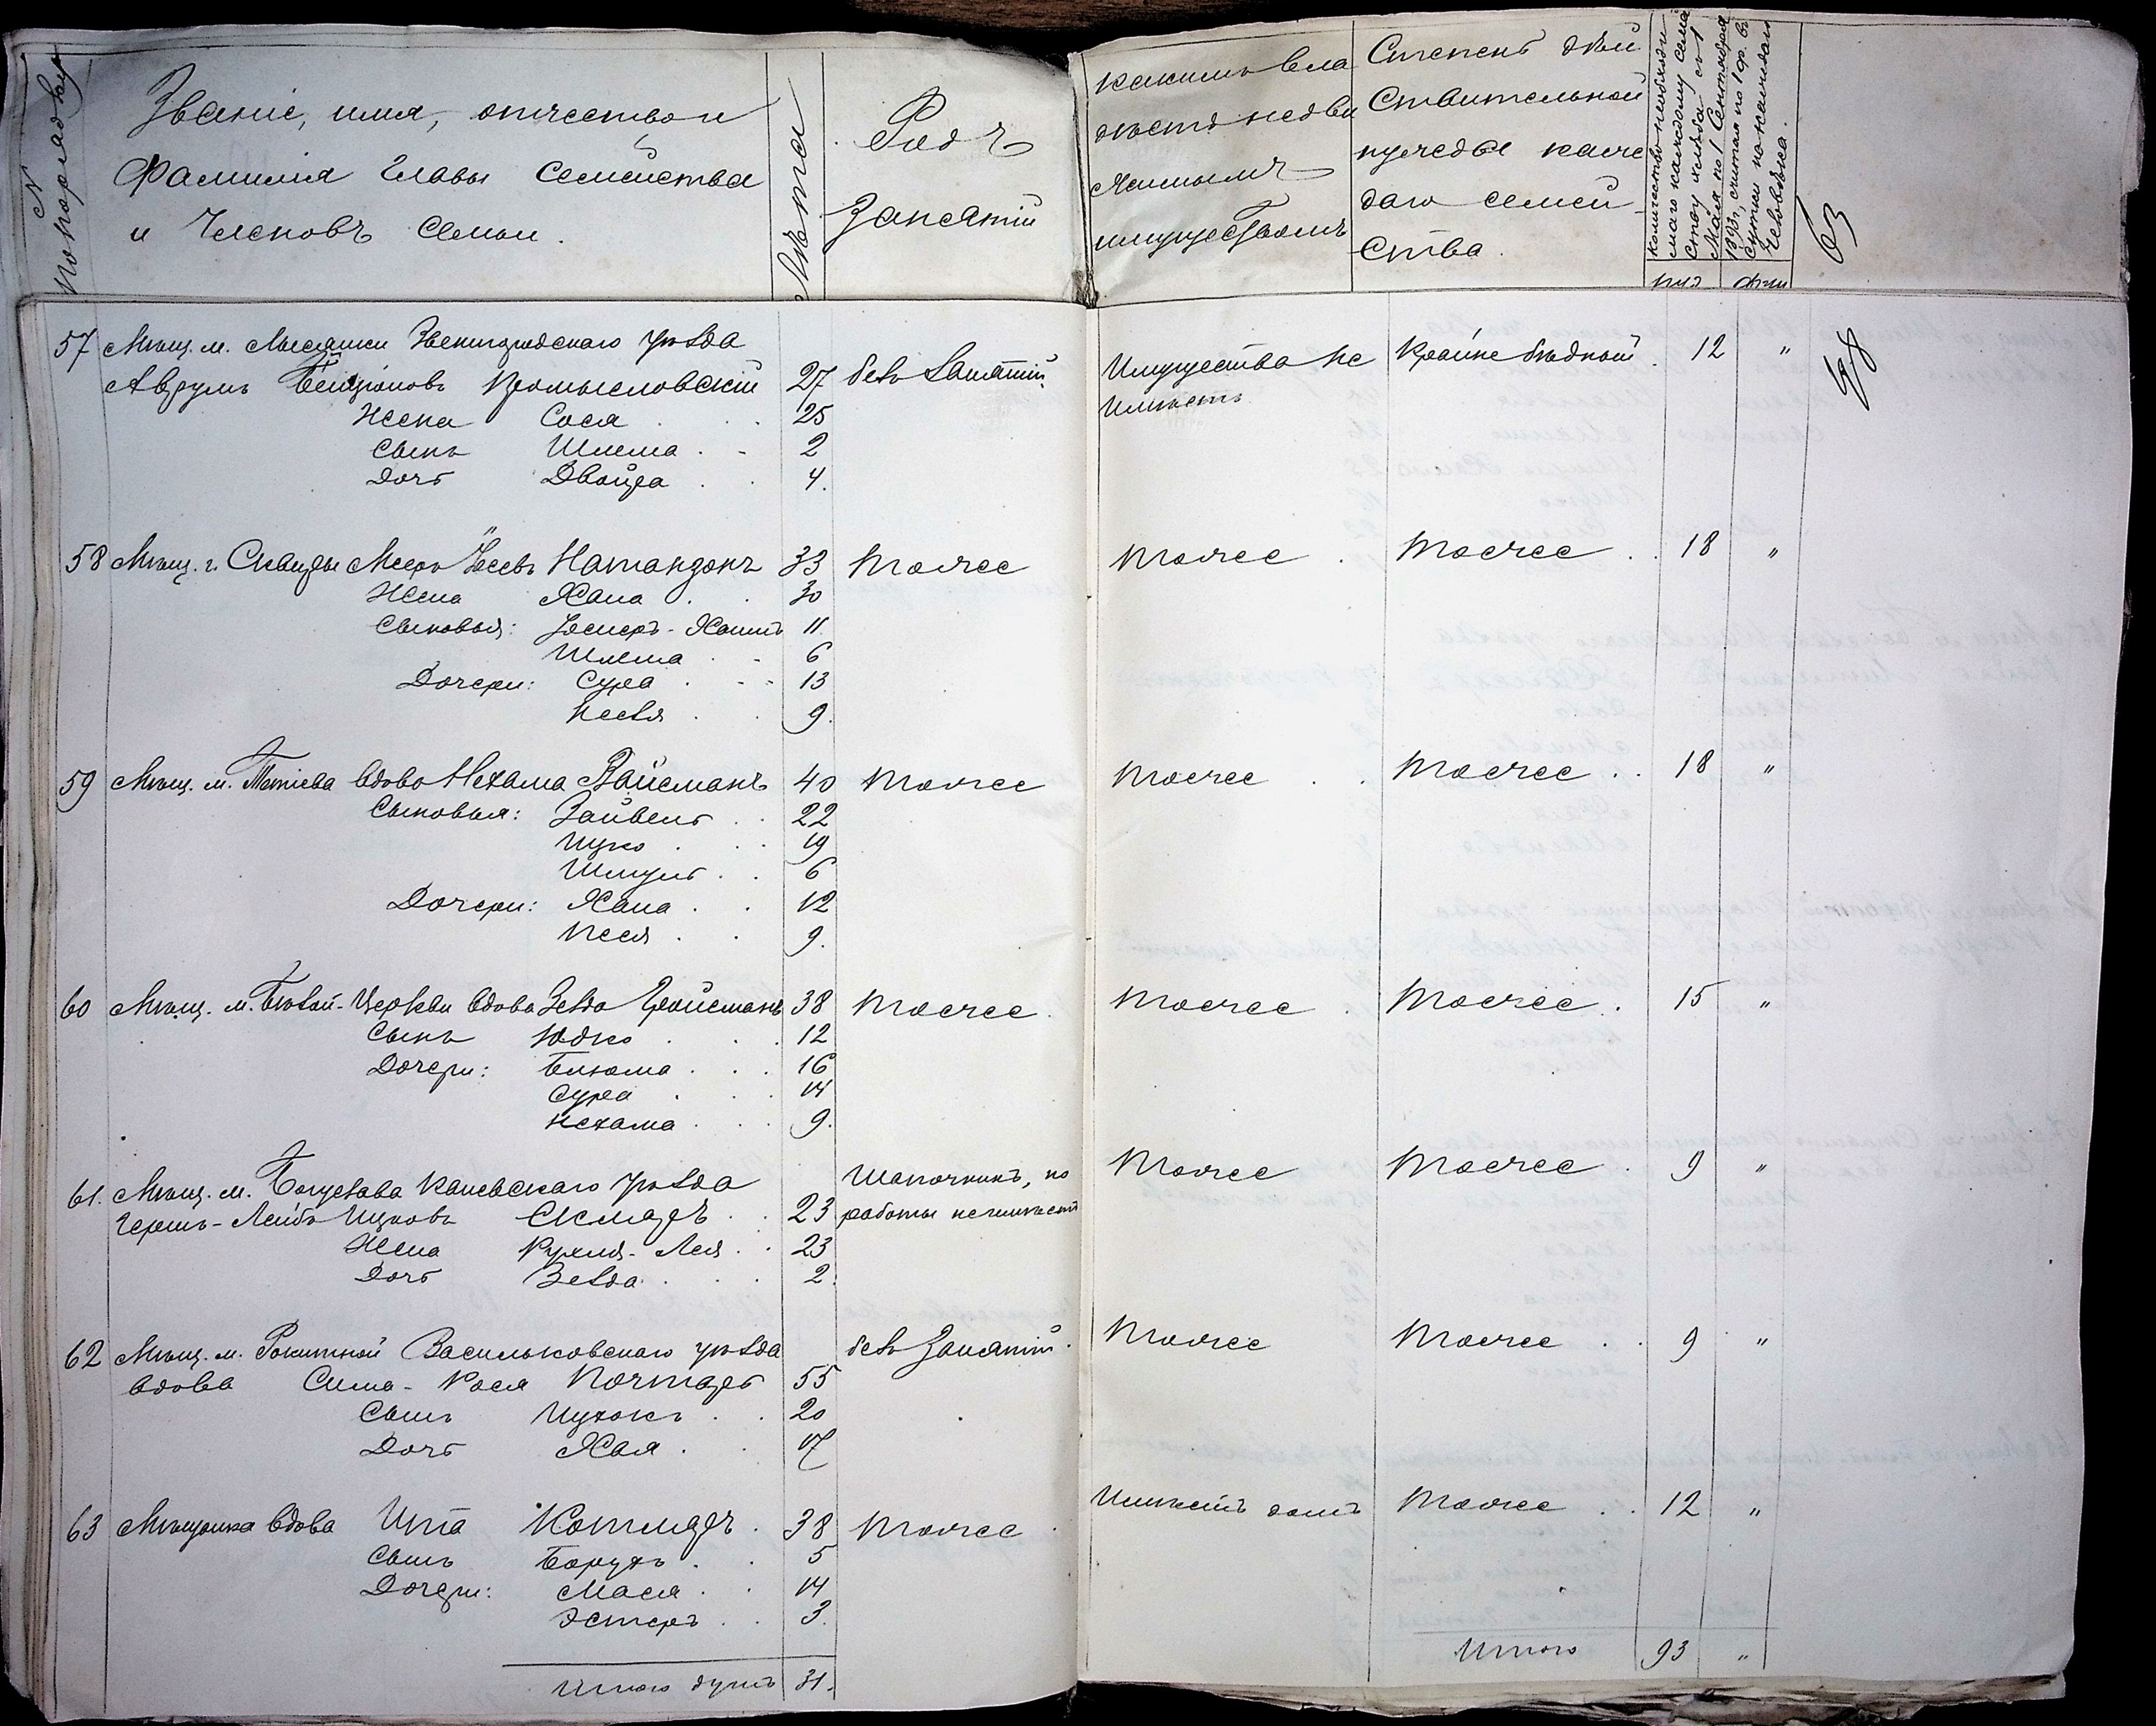 N по порядку
Званіе, имя, отчество и
фамилія главы семейства
и членовъ семьи.
Лѣта
Родъ
занятій
какимъ вла
дѣетъ недви
жимымъ
имуществомъ
Степень дѣй
ствительной
нужды каж
даго семей
ства.
количество необходи
маго каждому семе
ству хлѣба съ 1
Мая по 1 Сентября
1893 г, считая по 1 ф. въ
сутки на каждаго
человѣка.
пуд фун
63
57 Мѣщ. м. Лысянки Звенигородскаго уѣзда
Аврумъ Бенціоновъ Промысловскій 27 безъ занятій Имущества не Крайне бѣдный. 12 "
имѣетъ
Жена Сося 25
Сынъ Шлема 2
Дочь Двойра 4.
58 Мѣщ. г. Сквиры Мееръ Іосевъ Натанзонъ 33 тоже тоже тоже 18 "
Жена Хана 30
Сыновья: -Хаимъ 11
Шлема 6
Дочери: Сура 13
Песя 9.
59 Мѣщ. м. Тетіева вдова Нехама Вайсманъ 40 тоже тоже тоже 18 "
Сыновья: Зайвель 22
Ицко 19
Шмуль 6
Дочери: Хана 12
Песя 9.
60 Мѣщ. м. Бѣлой-Церкви вдова Зелда Гройсманъ 38 тоже тоже тоже 15 "
Сынъ Юдко 12
Дочери: Блюма 16
Сура 14
Нехама 9.
61. Мѣщ. м. Богуслава Каневскаго уѣзда Шапочникъ, но тоже тоже 9 "
Гершъ-Лейбъ Ицковъ Скляръ 23 работы неимѣетъ
Жена Рухля-Лея 23
Дочь Зелда 2.
62 Мѣщ. м. Рокитной Васильковскаго уѣзда безъ занятій. тоже тоже 9 "
вдова Сима-Рося Почтарь 55
Сынъ Ицхокъ 20
Дочь Хая 17
63 Мѣщанка вдова Ита Котляръ 38 тоже Имѣетъ домъ тоже 12 "
Сынъ Борухъ 5
Дочери: Мася 14
Эстеръ 3.
Итого душъ 31.
Итого 93 "